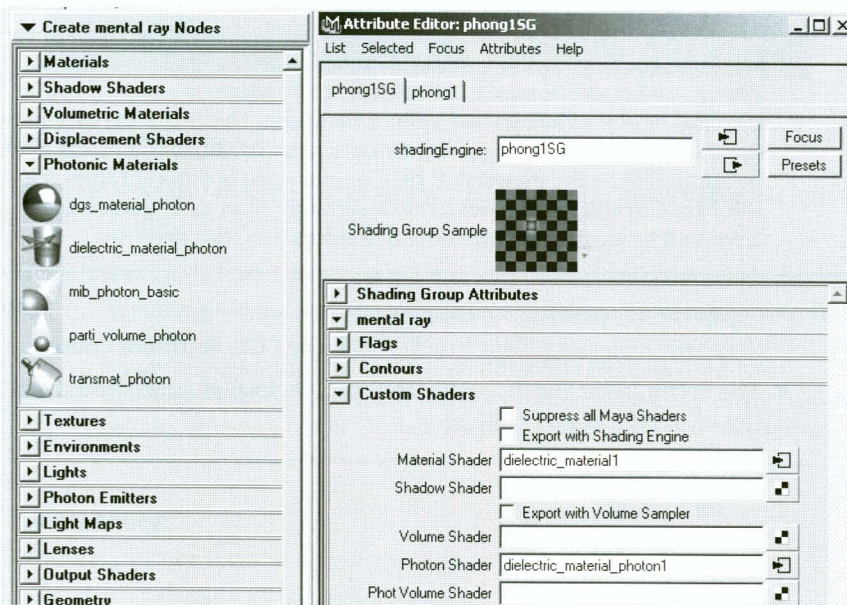 Create mental ray Nodes
Materials
Shadow Shaders
Volumetric Materials
Displacement Shaders
Photonic Materials
dgs_material_photon
dielectric_material_photon
mib_photon_basic
parti_volume_photon
transmat_photon
Textures
Environments
Lights
Photon Emitters
Light Maps
Lenses
Output Shaders
Geometry
Attribute Editor: phong1SG
List Selected Focus Attributes Help
phong1SG phong1
shadingEngine: phong1SG
Focus
Presets
Shading Group Sample
Shading Group Attributes
mental ray
Flags
Contours
Custom Shaders
Suppress all Maya Shaders
Export with Shading Engine
Material Shader dielectric_material1
Shadow Shader
Export with Volume Sampler
Volume Shader
Photon Shader dielectric_material_photon1
Phot Volume Shader